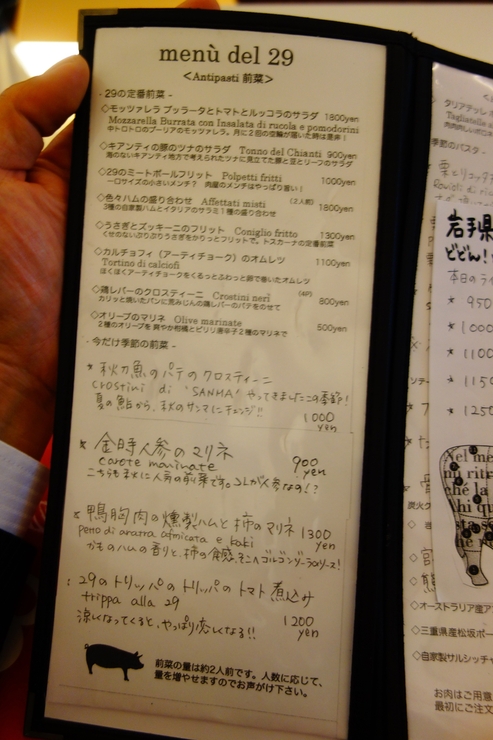 menù del 29
<Antipasti 前菜>
- 29の定番前菜 -
◇モッツァレラ ブッラータとトマトとルッコラのサラダ 1800yen
Mozzarella Burrata con Insalata di rucola e pomodorini
中トロトロのプーリアのモッツァレラ。月に2回の空輸が届いた時は是非！
◇キアンティの豚のツナのサラダ Tonno del Chianti 900yen
海のないキアンティ地方で考えられたツナに見立てた豚と豆とリーフのサラダ
◇29のミートボールフリット Polpetti fritti 1000yen
一口サイズの小さいメンチ？ 肉屋のメンチはやっぱり旨い！
◇色々ハムの盛り合わせ Affettati misti (2人前) 1800yen
3種の自家製ハムとイタリアのサラミ1種の盛り合わせ
◇うさぎとズッキーニのフリット Coniglio fritto 1300yen
くせのないぷりぷりうさぎをかりっとフリットで。トスカーナの定番前菜
◇カルチョフィ（アーティチョーク）のオムレツ 1100yen
Tortino di calciofi
ほくほくアーティチョークをくるっとふわっと卵で巻いたオムレツ
◇鶏レバーのクロスティーニ Crostini neri (4P) 800yen
カリッと焼いたパンに荒みじんの鶏レバーのパテをのせて
◇オリーブのマリネ Olive marinate 500yen
2種のオリーブを 爽やか柑橘とピリリ唐辛子2種のマリネで
- 今だけ季節の前菜 -
★ 秋刀魚のパテのクロスティーニ
crostini di "SANMA" やってきましたこの季節！
夏の鮎から、秋のサンマにチェンジ!! 1000 yen
★ 金時人参のマリネ
carote marinate 900 yen
こちらも秋に人気の前菜です。コレが人参なの!?
★ 鴨胸肉の燻製ハムと柿のマリネ 1300 yen
petto di anatra afmicata e kaki
かものハムの香りと、柿の食感、そこへゴルゴンゾーラのソース！
： 29のトリッパのトリッパのトマト煮込み
trippa alla 29 1200 yen
涼しくなってくると、やっぱり恋しくなる!!
前菜の量は約2人前です。人数に応じて、
量を増やせますのでお声がけ下さい。
タリアテッレ
Tagliatelle
季節のパスタ -
栗とリコッタ
Ravioli di ri
岩手県
どどん！
本日のラ
★ 950
★ 1000
★ 1100
★ 1150
★ 1250
Nel me
mi ritr
ché la
hi qu
sta s
炭火グ
◇オーストラリア産ア
◇三重県産松坂ポー
◇自家製サルシッチャ
お肉はご用意
最初にご注文